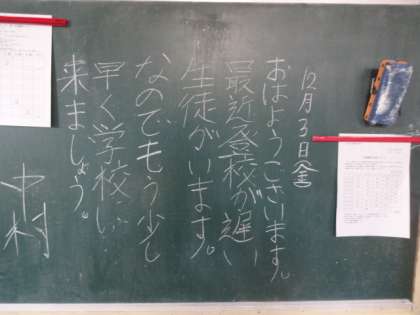 12月3日(金)
おはようございます。
最近登校が遅い
生徒がいます。
なのでもう少し
早く学校に
来ましょう。
中村